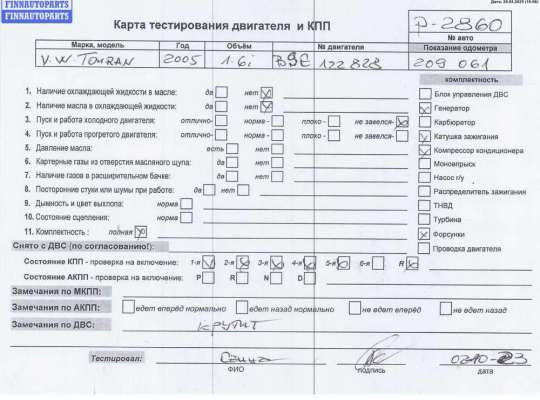 FINNAUTOPARTS
FINNAUTOPARTS
Карта тестирования двигателя и КПП
P-2860
№ авто
Марка, модель Год Объём № двигателя Показание одометра
V.W. TOURAN 2005 1.6i BSE 122828 209 061
комплектность
1. Наличие охлаждающей жидкости в масле: да нет
2. Наличие масла в охлаждающей жидкости: да нет
3. Пуск и работа холодного двигателя: отлично- норма - плохо - не завелся-
4. Пуск и работа прогретого двигателя: отлично- норма - плохо - не завелся-
5. Давление масла: есть нет
6. Картерные газы из отверстия масляного щупа: да нет
7. Наличие газов в расширительном бачке: да нет
8. Посторонние стуки или шумы при работе: да нет
9. Дымность и цвет выхлопа: норма
10. Состояние сцепления: норма
11. Комплектность : полная
Блок управления ДВС
Генератор
Карбюратор
Катушка зажигания
Компрессор кондиционера
Моновпрыск
Насос г/у
Распределитель зажигания
ТНВД
Турбина
Форсунки
Проводка двигателя
Снято с ДВС (по согласованию!):
Состояние КПП - проверка на включение: 1-я 2-я 3-я 4-я 5-я 6-я R
Состояние АКПП - проверка на включение: P R N D
Замечания по МКПП:
Замечания по АКПП: едет вперёд нормально едет назад нормально не едет вперёд не едет назад
Замечания по ДВС: крутит
Тестировал: Саша 02 10 23
ФИО подпись дата